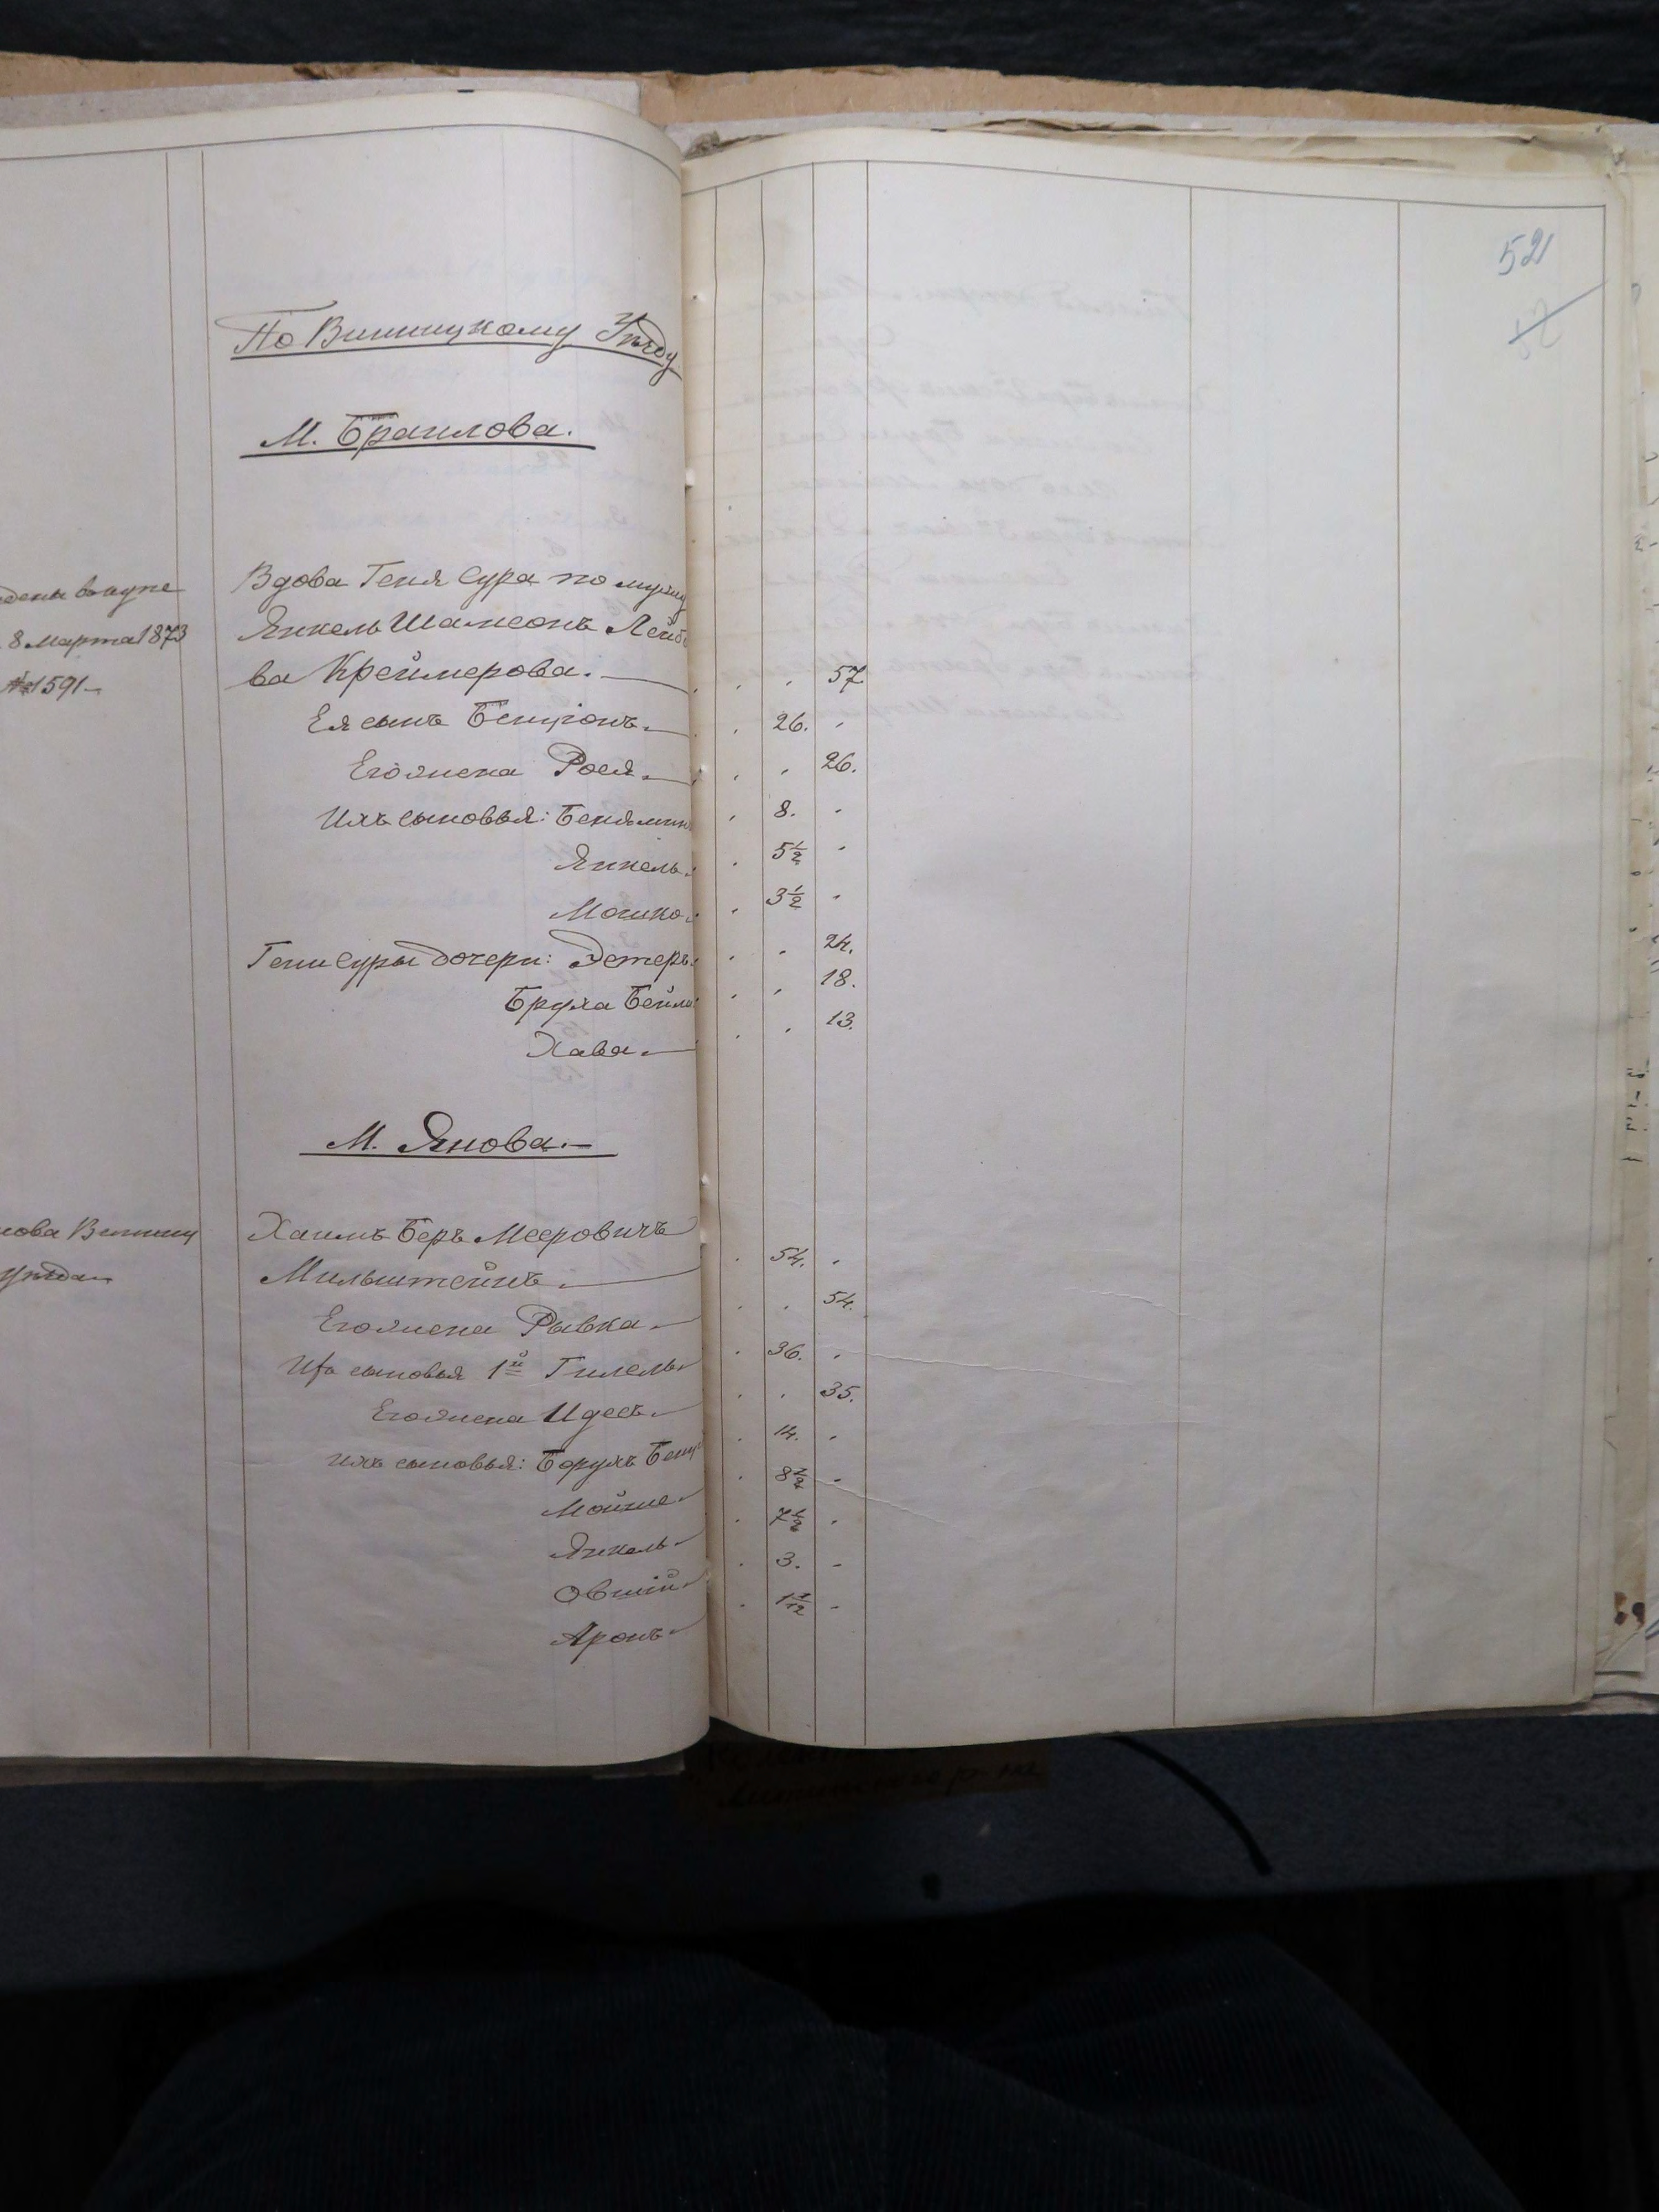 521
По Винницкому Уѣзду
М. Браилова.
Вдова Геня Сура по мужу
8 Марта 1873
Янкель Шамсонъ Лейбо
№ 1591
ва Креймерова. 57.
Ея сынъ Бенціонъ. 26.
Его жена Рося. 26.
Ихъ сыновья: Беньямин 8.
Янкель. 5½
Мошко. 3½
Гени Суры дочери: Эстеръ. 24.
Бруха Бейла 18.
Хава. 13.
М. Янова.
нова Винниц
Хаимъ Беръ Мееровичъ
Уѣзда
Мильштейнъ. 54.
Его жена Рывка. 54.
Ихъ сыновья 1й Гилель 36.
Его жена Идесъ. 35.
Ихъ сыновья: Борухъ Бенц 14.
Мойше 8½
Янкель 7½
Овшій 3.
Аронъ 1 1/12